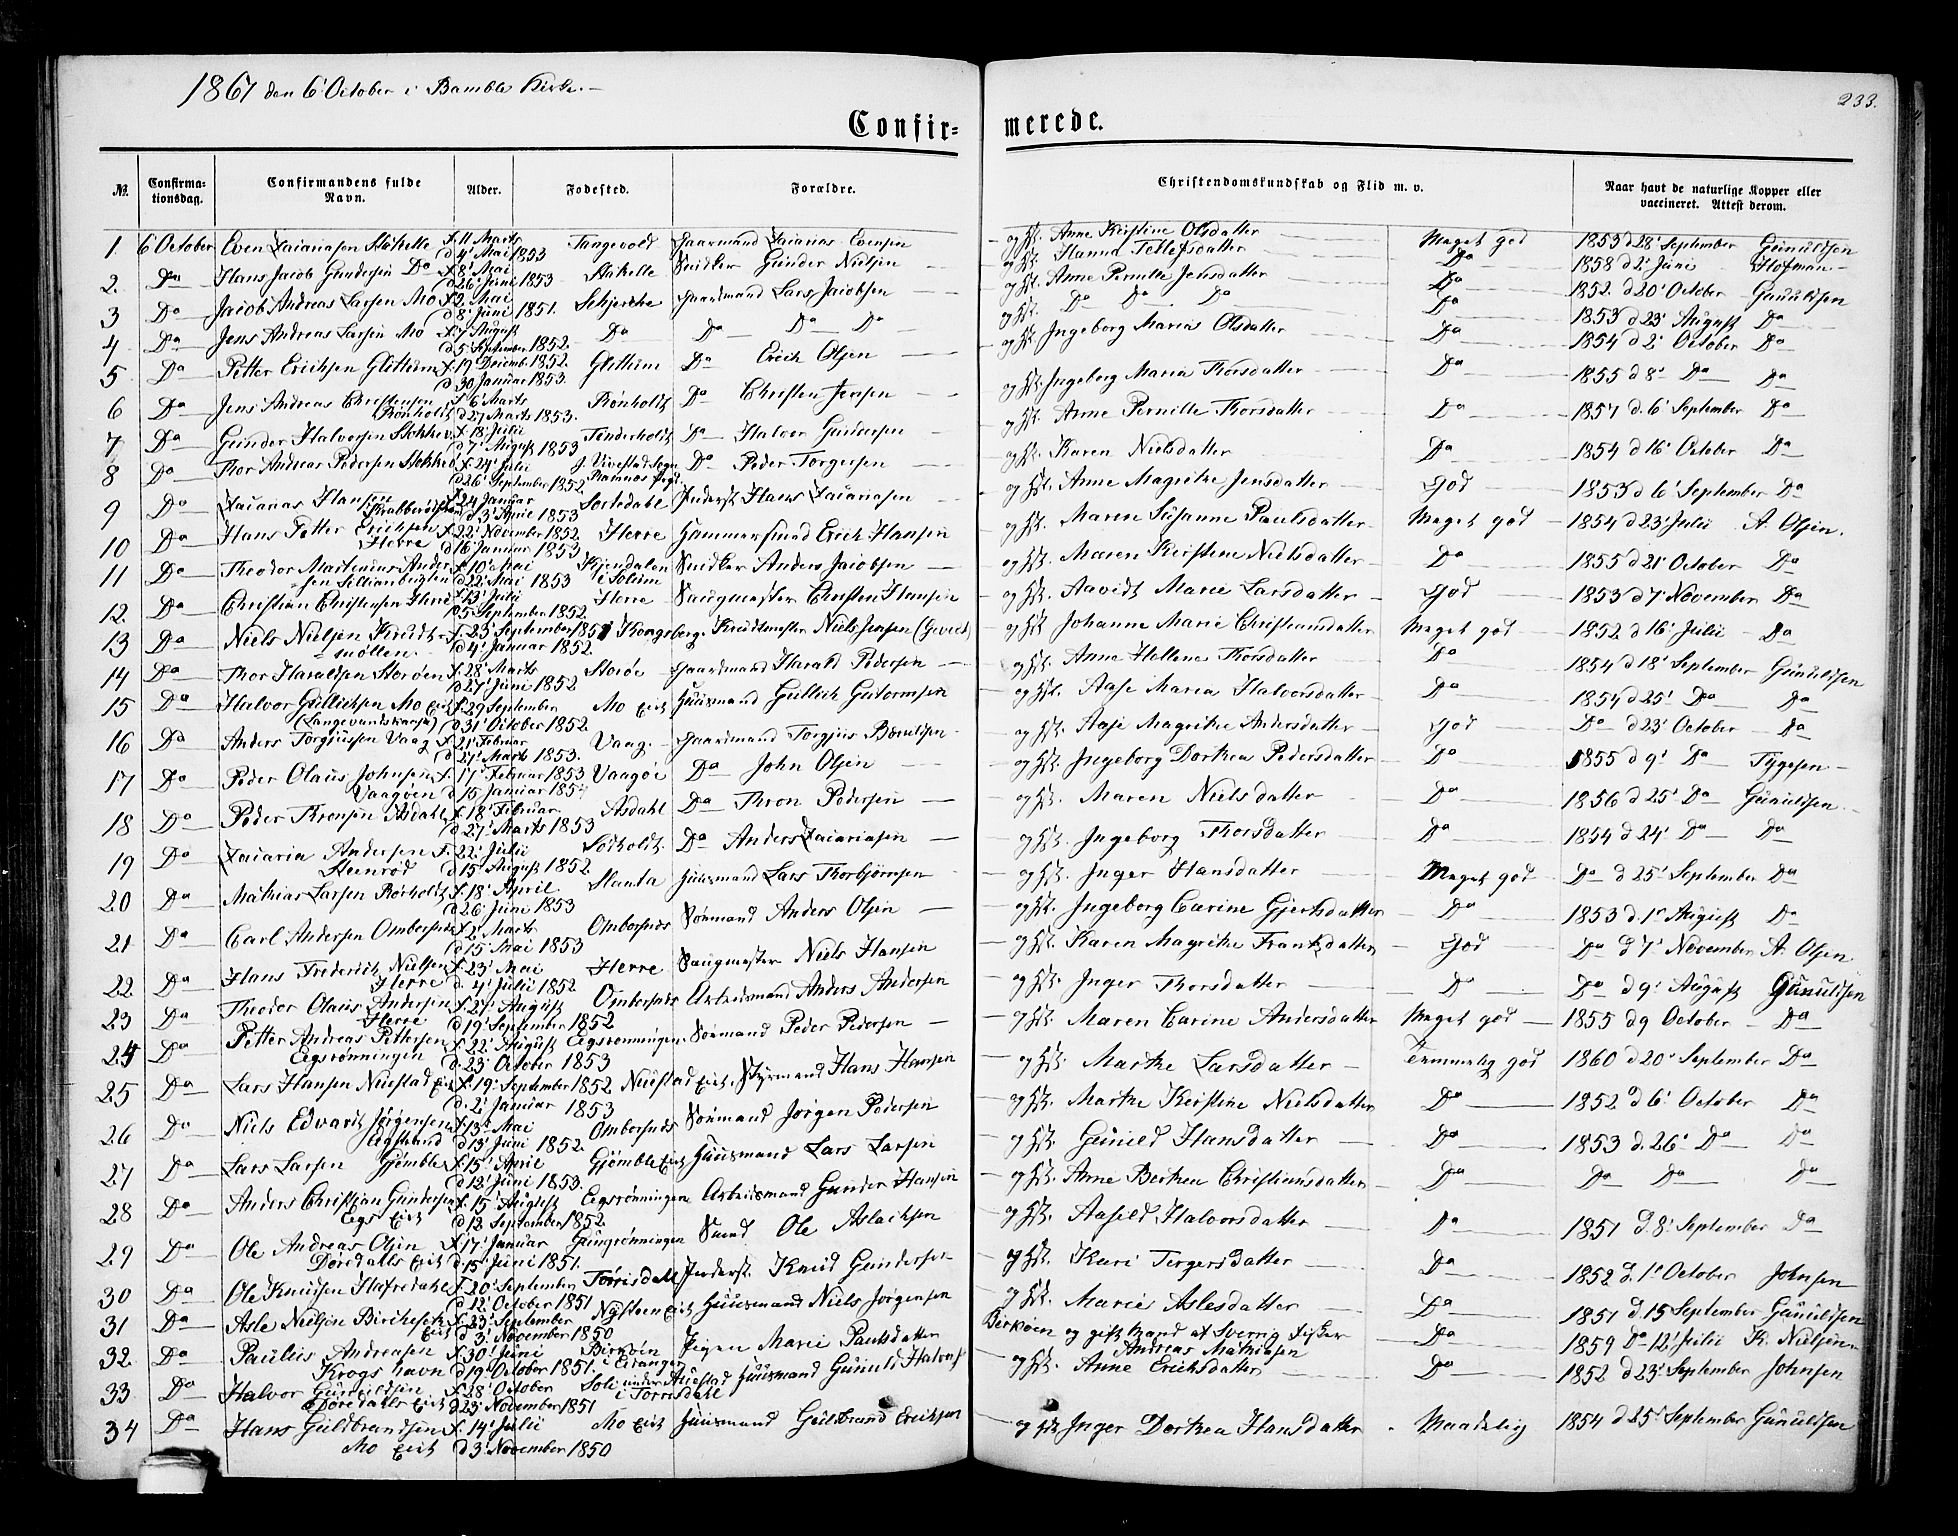 1867 den 6' October i Bamble Kirke. —
233.
Confir= merede.
№. Confirma-tionsdag. Confirmandens fulde Navn. Alder. Fodested. Forældre. Christendomskundskab og Flid m. v. Naar havt de naturlige Kopper eller vaccineret. Attest derom.
1. 6 October Even Zaiariasen Stokelle f. 11 Marts d 4' Mai 1853 Tangevold Gaarmand Zaiarias Evensen — og Hst. Anne Kirstine Olsdatter Meget god 1853 d 28' September Gunuldsen
2. Da Hans Jacob Gundersen Da f. 8' Mai d 26' Juni 1853 Stokelle Snidker Gunder Nielsen — og Hst. Hanna Tollefsdatter Da 1858 d 2' Juni Hofman
3 Da Jacob Andreas Larsen Mo f 2. Mai d 8' Juni 1851. Schjerke Gaardmand Lars Jacobsen — og Hst. Anne Pernille Jensdatter Da 1852. d 20' October Gunuldsen
4. Da Jens Andreas Larsen Mo f. 7' August d 5' September 1852. Da Da Da Da og Hst. Da Da Da Da 1853 d 23' August Da
5 Da Petter Erichsen Glittum f. 19 December 1852. d 30. Januar 1853. Glittum Da Erich Olsen — og Hst. Ingeborg Marias Olsdatter Da 1854 d 2' October Da
6 Da Jens Andreas Christensen Rønholdt f. 6' Marts d 27 Marts 1853. Rønholdt Da Christen Jensen — og Hst. Ingeborg Maria Thorsdatter Da 1855 d 8' Da Da
7 Da Gunder Halvorsen Stokke f. 18' Julii d 7' August 1853 Tinderholdt Da Halvor Gundersen — og Hst. Anne Pernille Thorsdatter Da 1857 d. 6' September Da
8 Da Thor Andreas Pedersen Stokke f. 24' Julii d 26' September 1852 J. Vivestad Sogn Ramnes Prgt Da Peder Torgersen — og Hst. Karen Nielsdatter Da 1854 d 16' October Da
9 Da Zaiarias Hansen f 24 Januar d 3' April 1853 Sortedahl Inderst Hans Zaiariasen — og Hst. Anne Magrethe Jensdatter God 1853 d 6' September Da
10 Da Hans Petter Erichsen Herre f. 22' November 1852. d 16' Januar 1853 Herre Hammersmed Erich Hansen og Hst. Maren Susanne Paulsdatter Meget god 1854 d 23' Julii A. Olsen.
11 Da Theodor Martinius Andersen f. 10' Mai d 22' Mai 1853 i Solum Snidker Anders Jacobsen — og Hst. Maren Kirstine Nielsdatter Da 1855 d 21' October Da
12. Da Christian Christensen Herre f. 13' Julii d 5' September 1852. Herre Saugmester Christen Hansen og Hst. Aavidt Marie Larsdatter God 1853 d 7' November Da
13 Da Niels Nielsen Krudtmøllen f. 23' September 1851 d 4' Januar 1852. Kongsberg. Krudtmester Niels Jensen og Hst. Johanne Marie Christiansdatter Meget god 1852 d 16' Julii Da
14 Da Thor Haraldsen Storøen f. 28' Marts d 27' Juni 1852 Storøe Gaardmand Harald Pedersen — og Hst. Anne Hellene Thorsdatter Da 1854 d 18' September Gunuldsen
15 Da Halvor Gullichsen Mo Eiet (Langevandskaasa) f. 29 September d 31' October 1852. Mo Eiet Huusmand Gullich Guttormsen og Hst. Aase Maria Halvorsdatter Da 1854 d 25' Da Da
16 Da Anders Torgjussen Vaag f. 21' Februar d 27' Marts 1853. Vaag. Gaardmand Torgjus Bænildsen og Hst. Aase Magrethe Andersdatter God Da d 23' October Da
17 Da Peder Olaus Johnsen Vaagøen f. 17' Februar 1853 d 15 Januar 1854 Vaagøe Da John Olsen og Hst. Ingeborg Dorthea Pedersdatter Da 1855 d 9' Da Tygesen
18 Da Peder Thronsen Asdahl f. 18' Februar d 27' Marts 1853 Asdahl Da Thron Pedersen — og Hst. Maren Nielsdatter Da 1856 d 25' Da Gunuldsen
19 Da Zaiaria Andersen Steenrød f. 22' Julii d 15' August 1852 Da Anders Zaiariasen og Hst. Ingeborg Thorsdatter Da 1854 d 24' Da Da
20 Da Mathias Larsen Rørholdt f. 18' April d 26' Juni 1853 Huusmand Lars Thorbjørnsen og Hst. Inger Hansdatter Meget god Da d 25' September Da
21 Da Carl Andersen Omborsnes f. 2' Marts d 15' Mai 1853 Omborsnes Sømand Anders Olsen — og Hst. Ingeborg Carine Gjertsdatter Da 1853 d. 1' August Da
22 Da Hans Frederich Nielsen Herre f. 23' Mai d. 4' Julii 1852 Herre Saugmester Niels Hansen og Hst. Karen Magrethe Frantsdatter God Da d 7' November A. Olsen
23 Da Theodor Olaus Andersen Herre f. 27' August d 19' September 1852 Ombersnes Arbeidsmand Anders Andersen og Hst. Inger Thorsdatter Da Da d 9' August Gunuldsen
24 Da Petter Andreas Pettersen Eegsrønningen f. 22' August d. 23' October 1853 Eegsrønningen. Sømand Peder Pedersen — og Hst. Maren Carine Andersdatter Meget god 1855 d 9 October Da
25 Da Lars Hansen Nuestad Eiet f. 19' September 1852 d. 2' Januar 1853 Nuestad Eiet. Styrmand Hans Hansen og Hst. Marthe Larsdatter Temmelig god 1860 d 20' September Da
26 Da Niels Edvard Jørgensen f. 13' Mai d 13' Juni 1852. Ombersnes Sømand Jørgen Pedersen og Hst. Marthe Kirstine Nielsdatter Da 1852 d 6' October Da
27 Da Lars Larsen Gjømble f. 15' April d 12' Juni 1853. Gjømble Eiet Huusmand Lars Larsen og Hst. Gunild Hansdatter Da 1853 d. 26' Da Da
28 Da Anders Christian Gundersen Eegs Eiet f. 15' August d 12 September 1852 Eegsrønningen Arbeidsmand Gunder Hansen og Hst. Anne Berthea Christiansdatter Da Da Da Da
29 Da Ole Andreas Olsen Døredalls Eiet f. 17' Januar d. 15' Juni 1851. Smed Ole Aslachsen og Hst. Aasild Halvorsdatter Da 1851 d. 8' September Da
30 Da Ole Knudsen Hafredahl f. 20' September d 12' October 1851 Torrisdall Inderst. Knud Gundersen og Hst. Kari Tergersdatter Da 1852 d. 1' October Johnsen
31 Da Asle Nielsen Eiet f. 23' September d 3' November 1850 Eiet Huusmand Niels Jørgensen og Hst. Marie Aslesdatter Da 1851 d. 15 September Gunuldsen
32. Da Paulus Andreasen Krogshavn f. 30' Juni d 19' October 1851. Birkøen i Eidanger Pigen Marie Paulsdatter Birkøen og gift Mand af Sverrig Fisker Andreas Mathiasen Da 1859 Da 12' Julii K. Nielsen
33 Da Halvor Gunuldsen Døredalls Eiet f. 28' October d 23' November 1851 Soli under Nuestad i Torrisdahl Huusmand Gunuld Halvors. og Hst. Anne Erichsdatter Da 1852 d 23' September Johnsen
34 Da Hans Guldbrandsen Mo Eiet f. 14' Julii d 3' November 1850 Mo Eiet Huusmand Guldbrand Erichsen — og Hst Inger Dorthea Hansdatter Maadelig 1854 d 25' September Gunuldsen